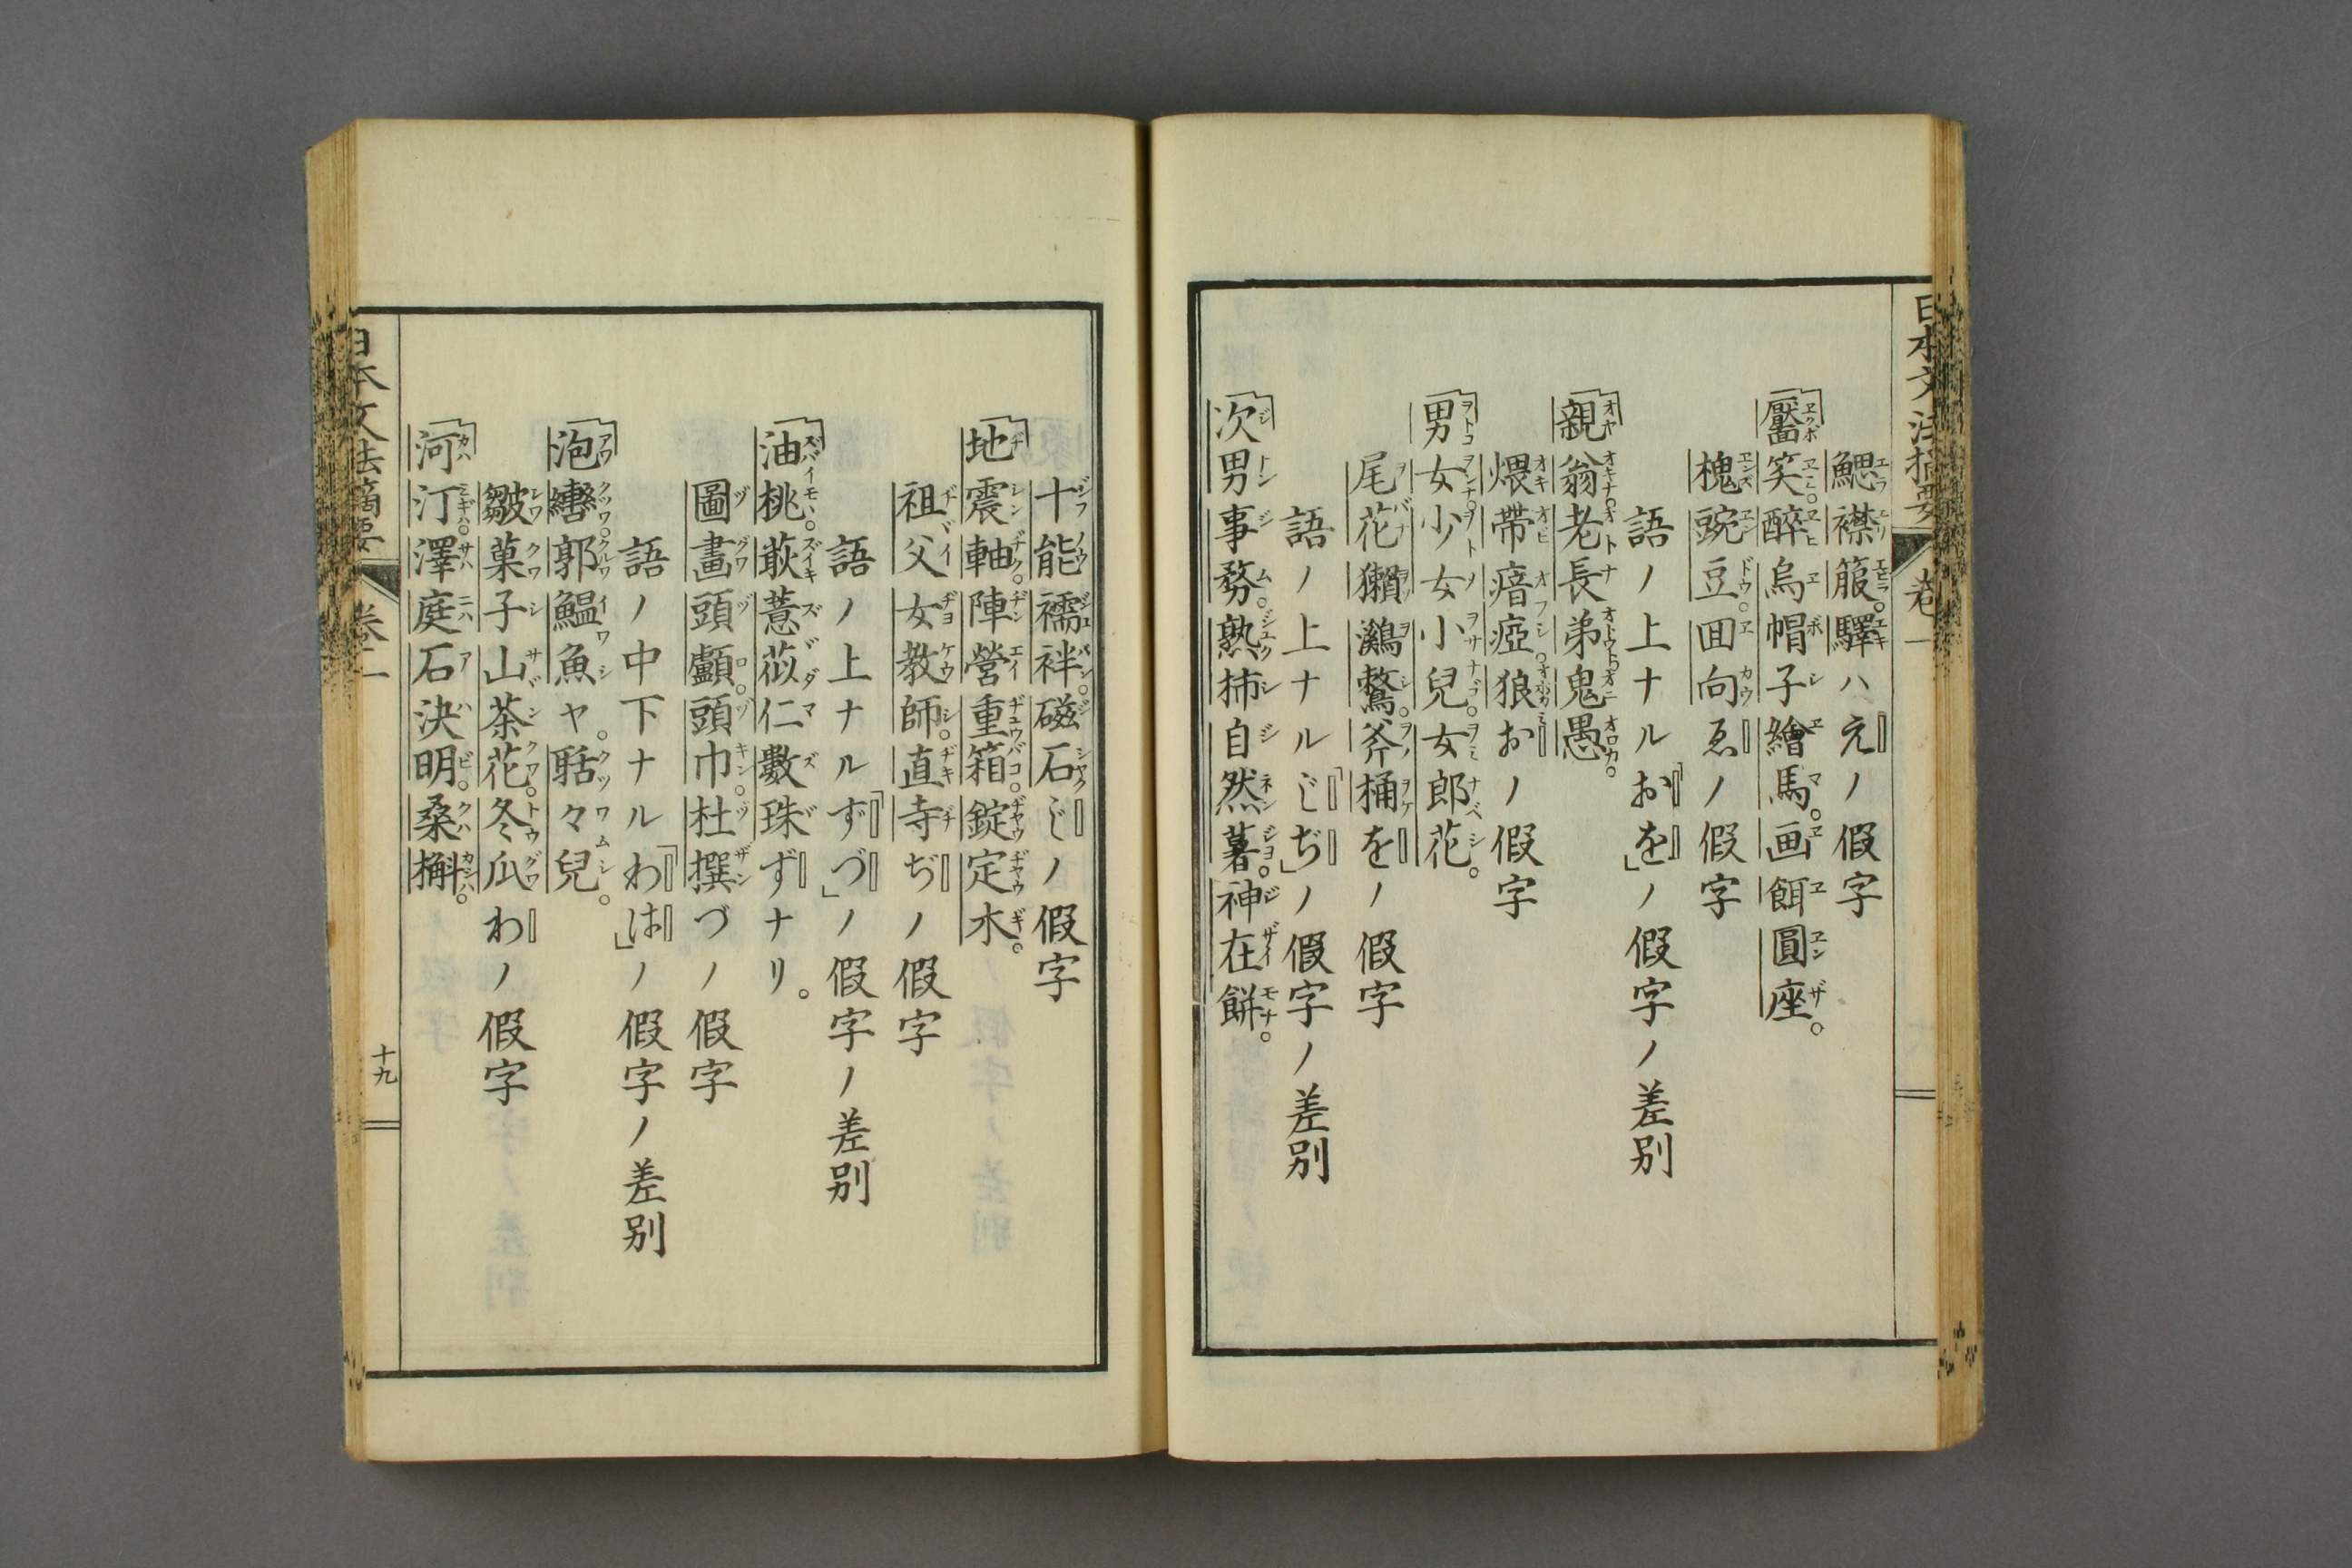 日本文法摘要 卷一
鰓襟箙驛ハえノ假字
靨笑醉烏帽子繪馬画餌圓座
槐豌豆囬向ゑノ假字
語ノ上ナル「おを」ノ假字ノ差別
親翁老長弟鬼愚
煨帶瘖瘂狼おノ假字
男女少女小兒女郎花
尾花獺鷀鷘斧桶をノ假字
語ノ上ナル「じぢ」ノ假字ノ差別
次男事務熟柿自然薯神在餅
十能襦袢磁石じノ假字
地震軸陣營重箱錠定木
祖父女教師直寺ぢノ假字
語ノ上ナル「ずづ」ノ假字ノ差別
油桃蔌薏苡仁數珠ずナリ。
圖畫頭顱頭巾杜撰づノ假字
語ノ中下ナル「わは」ノ假字ノ差別
泡轡郭鰛魚ヤ。聒々兒
皺菓子山茶花冬瓜わノ假字
河汀澤庭石決明桑槲
日本文法摘要 卷一 十九